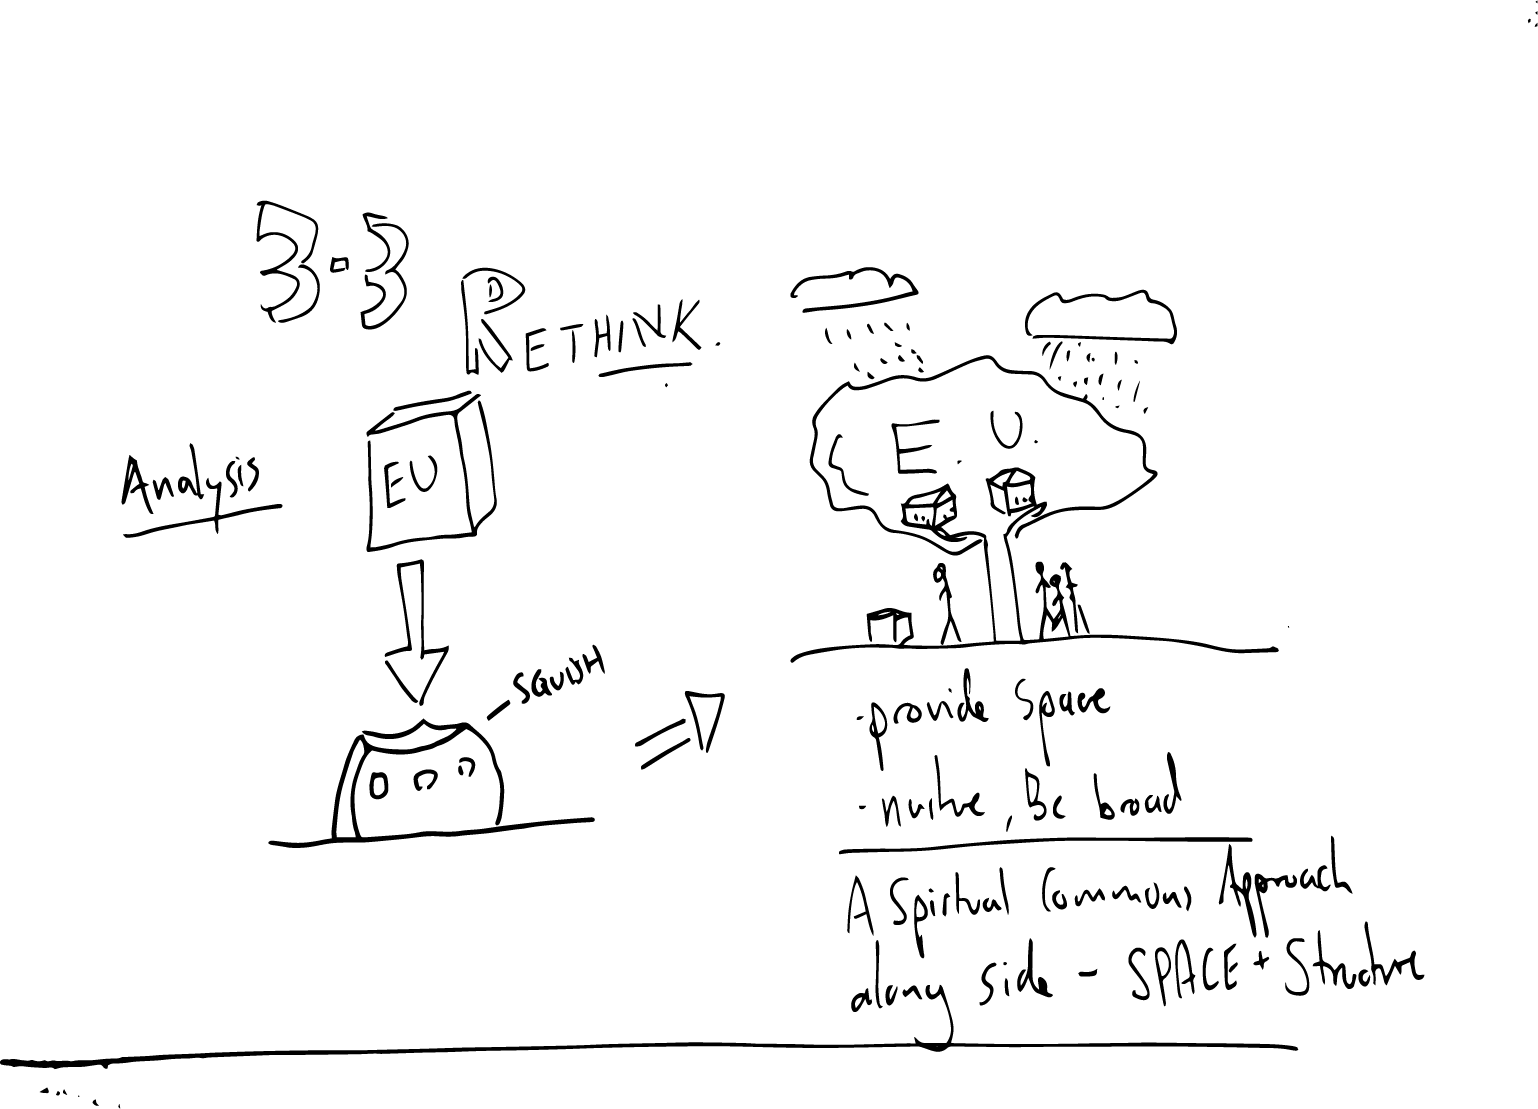 3.3
RETHINK.
Analysis
EU
SQUISH
E.U.
·provide Space
·nurture, Be broad
A Spirtual Commons Approach
along side - SPACE + Structure